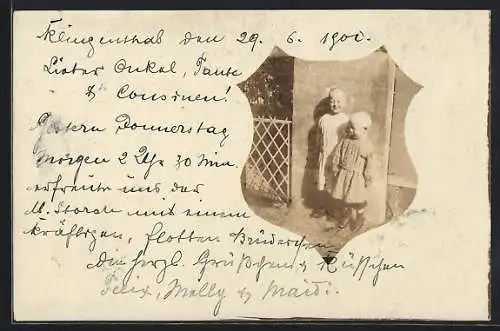 Klingenthal den 29. 6. 1900.
Lieber Onkel, Tante
& Cousinen!
Gestern Donnerstag
morgen 2 Uhr 30 Min.
erfreute uns der
Kl. Storch mit einem
kräftigen, flotten Brüderchen
Die herzl. Grüßchen & Küsschen
Felix, Melly & Maidi.